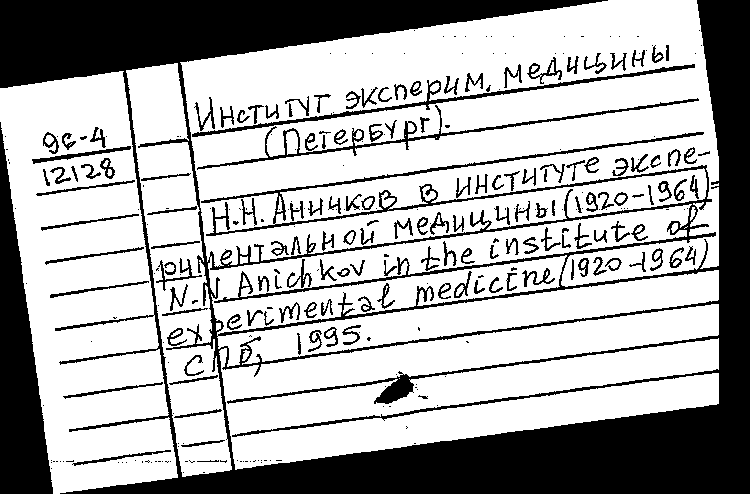 9с-4
12128
Институт эксперим. медицины
(Петербург).
Н.Н. Аничков в институте экспе-
риментальной медицины (1920-1964)=
N.N. Anichkov in the institute of
experimental medicine (1920-1964)
СПб, 1995.